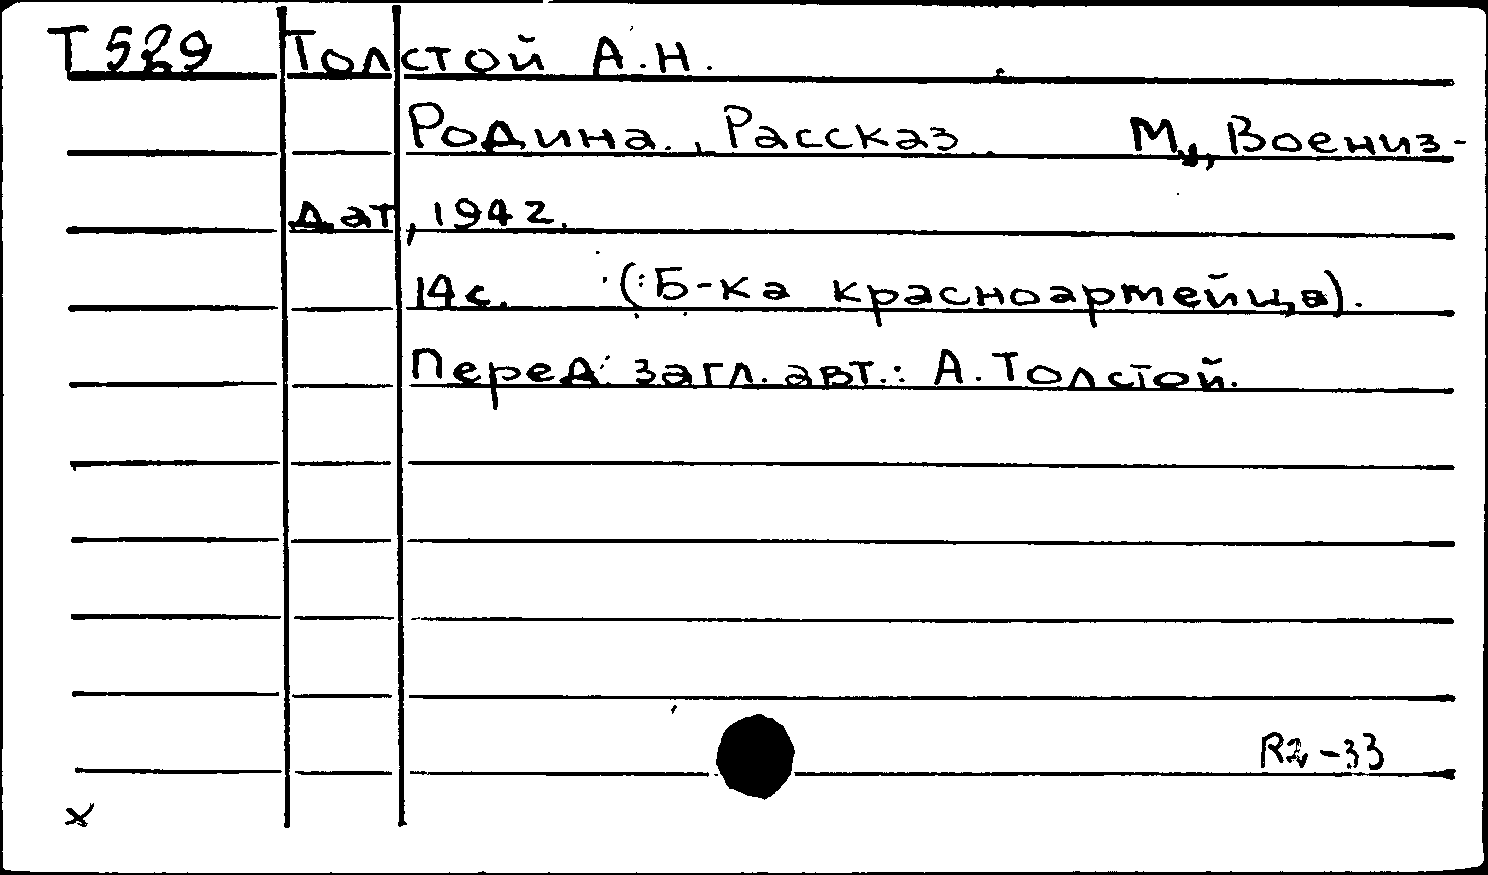 Т529 Толстой А.Н.
Родина. Рассказ. М., Воениз-
дат, 1942.
14 с. (Б-ка красноармейца).
Перед загл. авт.: А. Толстой.
R2-33
x